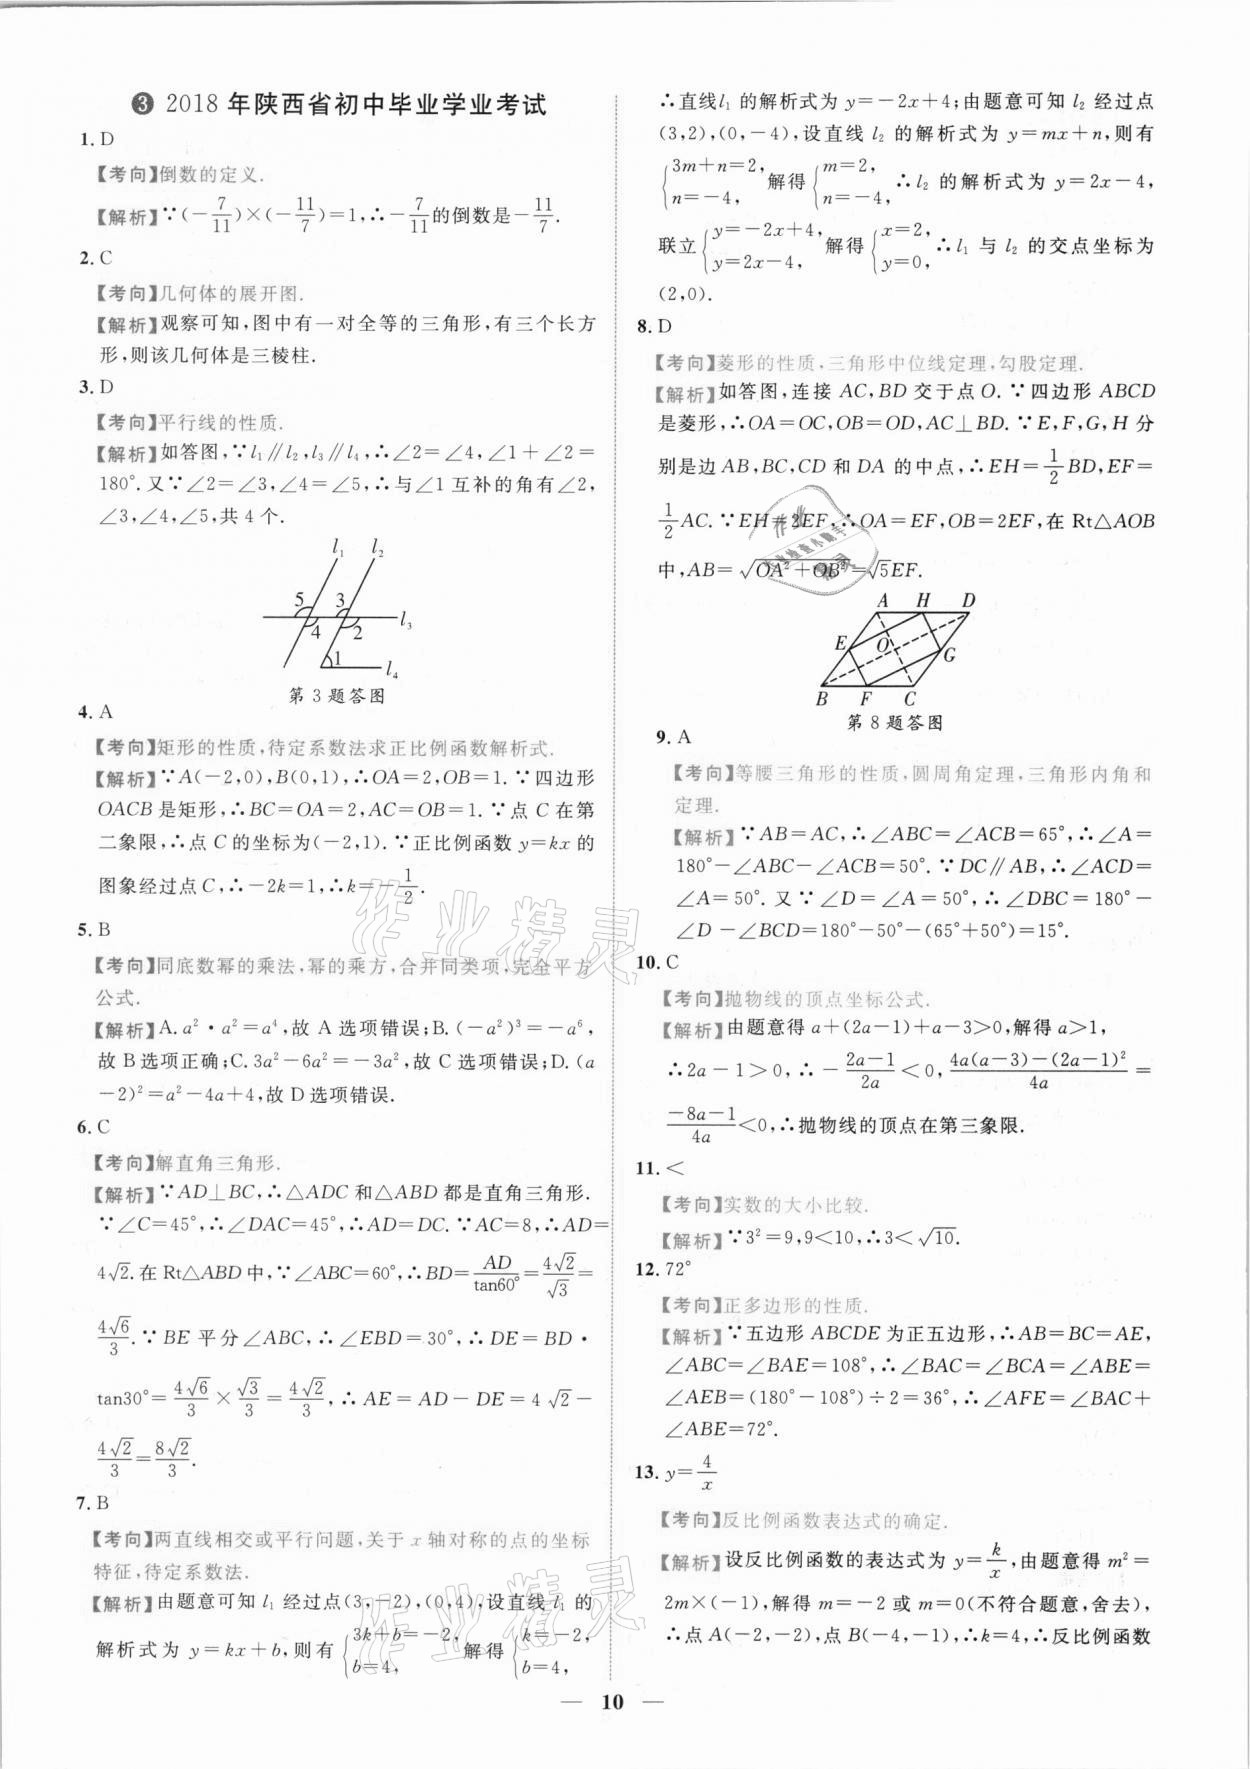 ❸ 2018年陕西省初中毕业学业考试
1. D
【考向】倒数的定义.
【解析】∵(−7/11)×(−11/7)=1,∴−7/11的倒数是−11/7.
2. C
【考向】几何体的展开图.
【解析】观察可知,图中有一对全等的三角形,有三个长方
形,则该几何体是三棱柱.
3. D
【考向】平行线的性质.
【解析】如答图,∵l₁∥l₂,l₃∥l₄,∴∠2=∠4,∠1+∠2=
180°.又∵∠2=∠3,∠4=∠5,∴与∠1互补的角有∠2,
∠3,∠4,∠5,共4个.
l₁ l₂
5 3
4 2 l₃
1 l₄
第3题答图
4. A
【考向】矩形的性质,待定系数法求正比例函数解析式.
【解析】∵A(−2,0),B(0,1),∴OA=2,OB=1.∵四边形
OACB是矩形,∴BC=OA=2,AC=OB=1.∵点C在第
二象限,∴点C的坐标为(−2,1).∵正比例函数y=kx的
图象经过点C,∴−2k=1,∴k=−1/2.
5. B
【考向】同底数幂的乘法,幂的乘方,合并同类项,完全平方
公式.
【解析】A. a²·a²=a⁴,故A选项错误;B. (−a²)³=−a⁶,
故B选项正确;C. 3a²−6a²=−3a²,故C选项错误;D. (a
−2)²=a²−4a+4,故D选项错误.
6. C
【考向】解直角三角形.
【解析】∵AD⊥BC,∴△ADC和△ABD都是直角三角形.
∵∠C=45°,∴∠DAC=45°,∴AD=DC.∵AC=8,∴AD=
4√2.在Rt△ABD中,∵∠ABC=60°,∴BD=AD/tan60°=4√2/√3=
4√6/3.∵BE平分∠ABC,∴∠EBD=30°,∴DE=BD·
tan30°=4√6/3×√3/3=4√2/3,∴AE=AD−DE=4√2−
4√2/3=8√2/3.
7. B
【考向】两直线相交或平行问题,关于x轴对称的点的坐标
特征,待定系数法.
【解析】由题意可知l₁经过点(3,−2),(0,4),设直线l₁的
解析式为y=kx+b,则有{3k+b=−2, b=4, 解得{k=−2, b=4,
∴直线l₁的解析式为y=−2x+4;由题意可知l₂经过点
(3,2),(0,−4),设直线l₂的解析式为y=mx+n,则有
{3m+n=2, n=−4, 解得{m=2, n=−4, ∴l₂的解析式为y=2x−4,
联立{y=−2x+4, y=2x−4, 解得{x=2, y=0, ∴l₁与l₂的交点坐标为
(2,0).
8. D
【考向】菱形的性质,三角形中位线定理,勾股定理.
【解析】如答图,连接AC,BD交于点O.∵四边形ABCD
是菱形,∴OA=OC,OB=OD,AC⊥BD.∵E,F,G,H分
别是边AB,BC,CD和DA的中点,∴EH=1/2BD,EF=
1/2AC.∵EH=2EF,∴OA=EF,OB=2EF,在Rt△AOB
中,AB=√(OA²+OB²)=√5EF.
A H D
E O G
B F C
第8题答图
9. A
【考向】等腰三角形的性质,圆周角定理,三角形内角和
定理.
【解析】∵AB=AC,∴∠ABC=∠ACB=65°,∴∠A=
180°−∠ABC−∠ACB=50°.∵DC∥AB,∴∠ACD=
∠A=50°.又∵∠D=∠A=50°,∴∠DBC=180°−
∠D−∠BCD=180°−50°−(65°+50°)=15°.
10. C
【考向】抛物线的顶点坐标公式.
【解析】由题意得a+(2a−1)+a−3>0,解得a>1,
∴2a−1>0,∴−(2a−1)/2a<0,(4a(a−3)−(2a−1)²)/4a=
(−8a−1)/4a<0,∴抛物线的顶点在第三象限.
11. <
【考向】实数的大小比较.
【解析】∵3²=9,9<10,∴3<√10.
12. 72°
【考向】正多边形的性质.
【解析】∵五边形ABCDE为正五边形,∴AB=BC=AE,
∠ABC=∠BAE=108°,∴∠BAC=∠BCA=∠ABE=
∠AEB=(180°−108°)÷2=36°,∴∠AFE=∠BAC+
∠ABE=72°.
13. y=4/x
【考向】反比例函数表达式的确定.
【解析】设反比例函数的表达式为y=k/x,由题意得m²=
2m×(−1),解得m=−2或m=0(不符合题意,舍去),
∴点A(−2,−2),点B(−4,−1),∴k=4,∴反比例函数
— 10 —
作业精灵
作业精灵